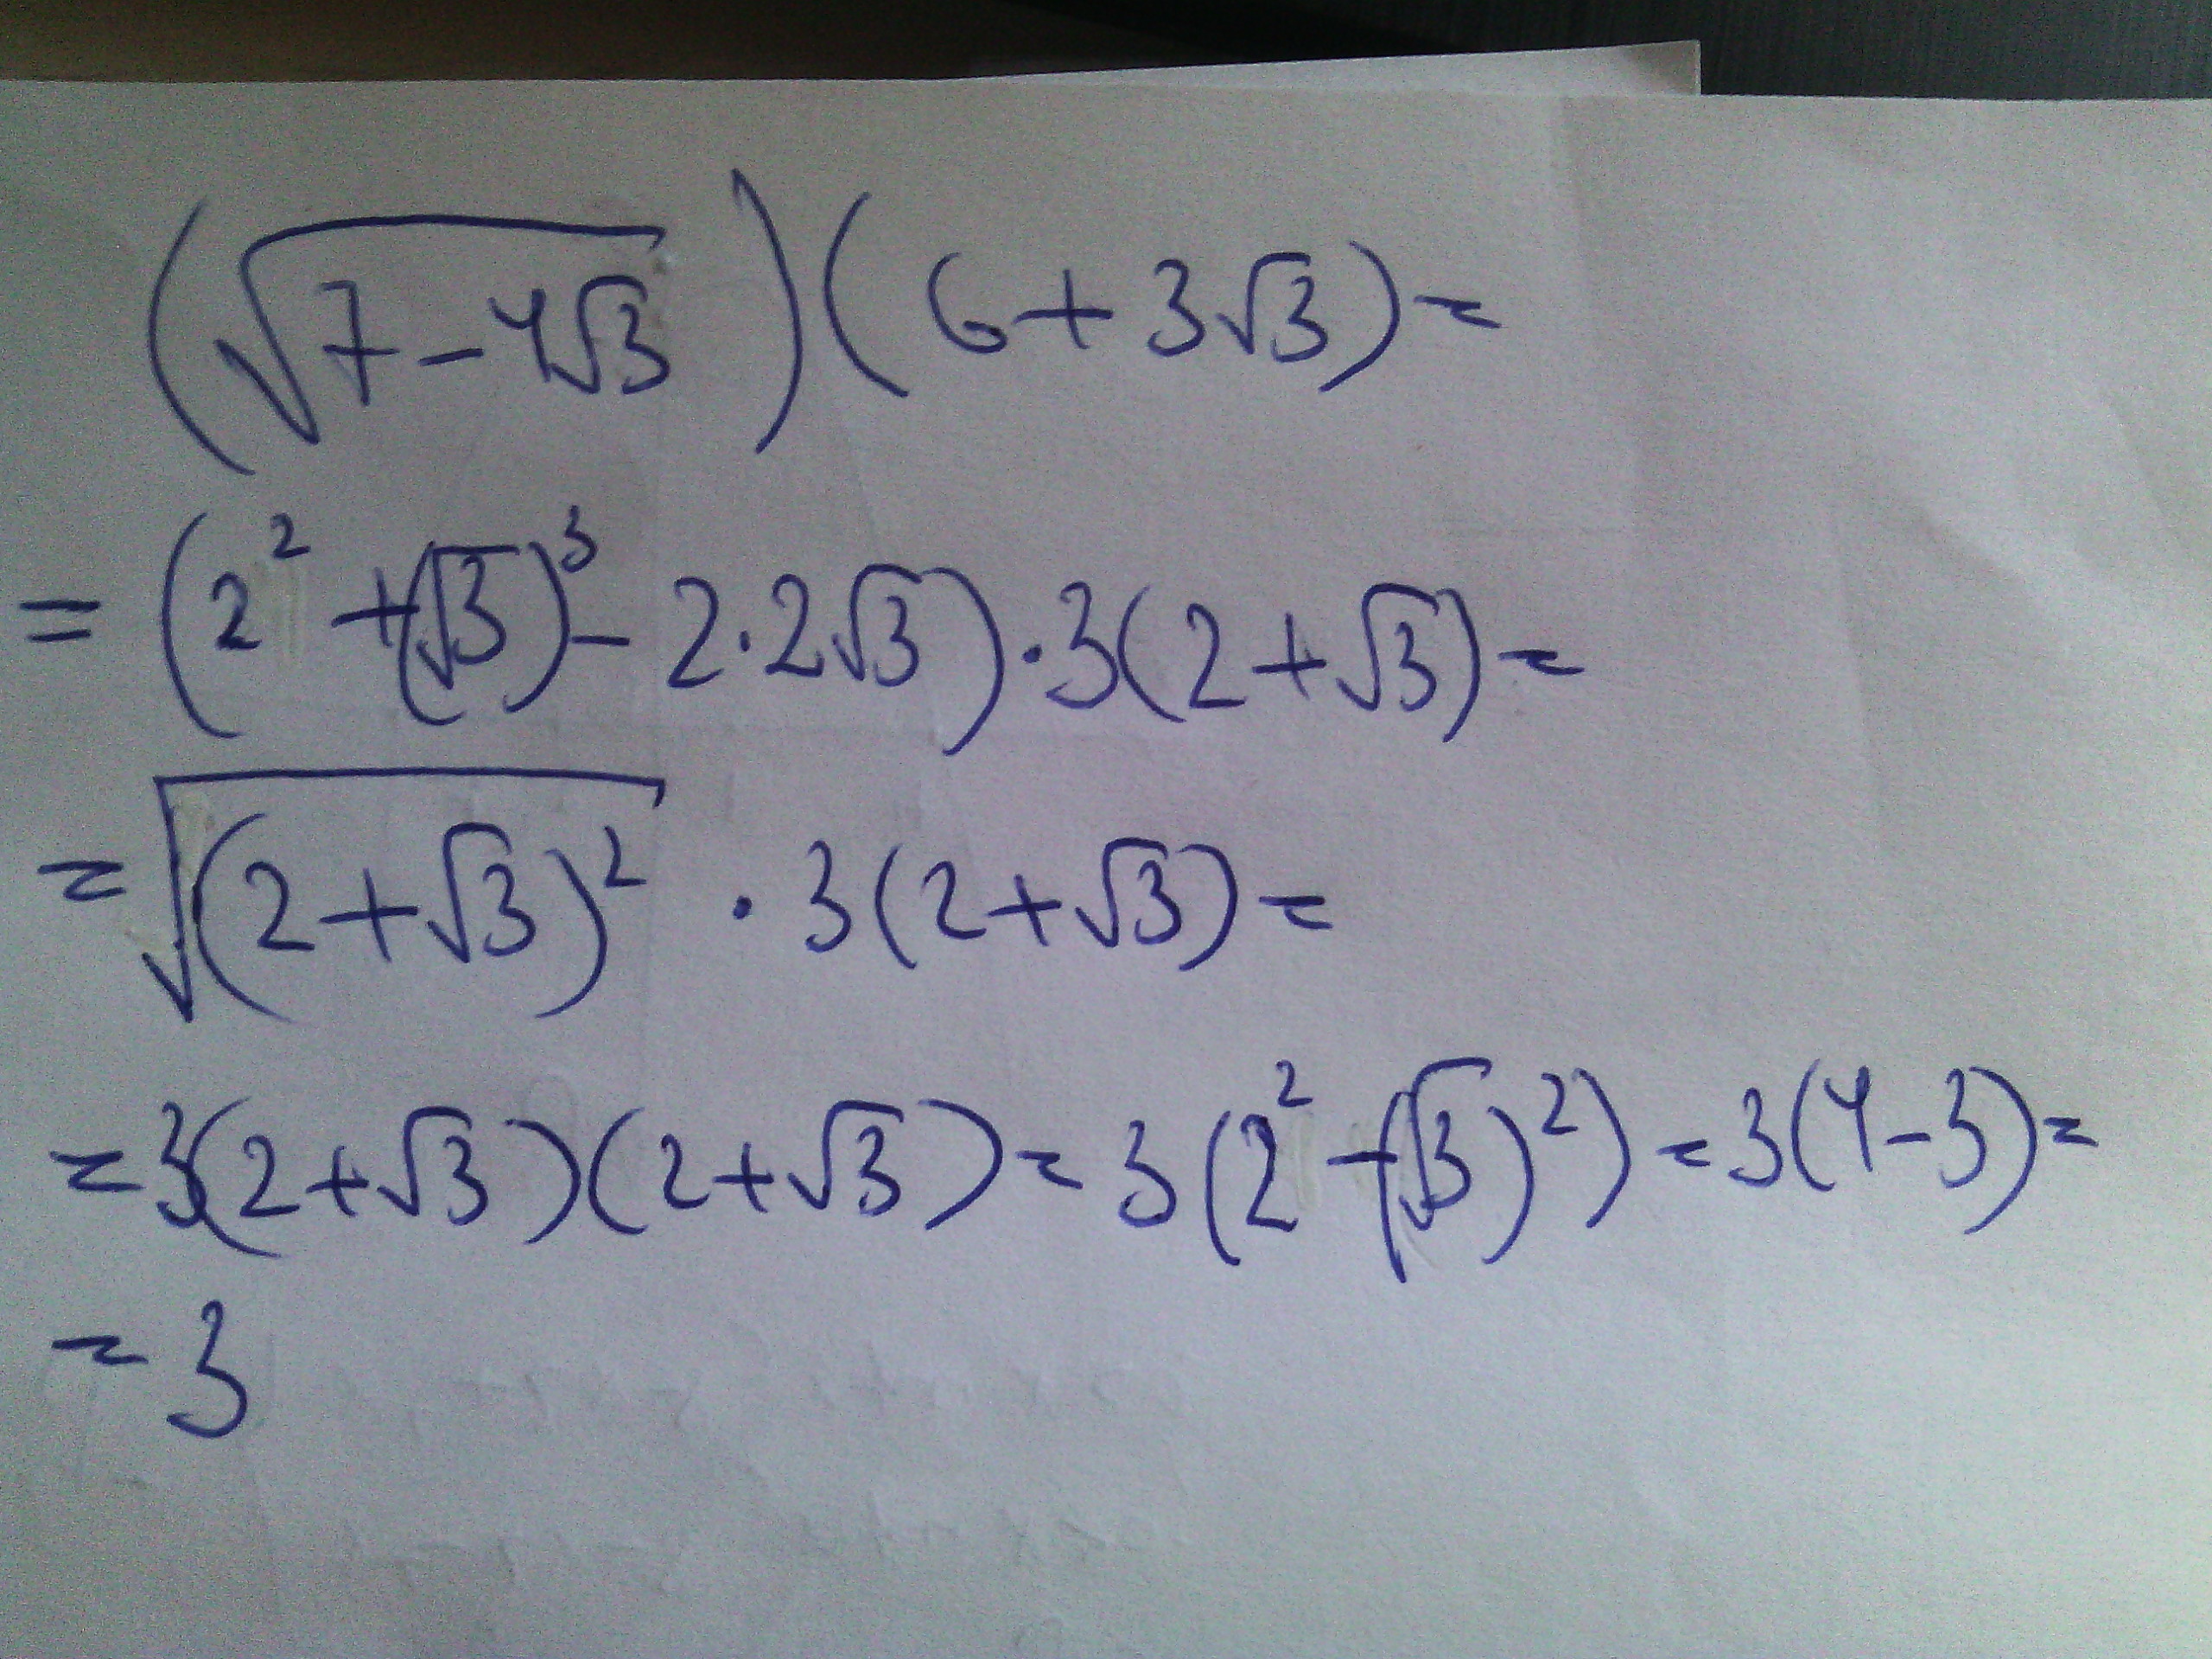 (√(7-4√3))(6+3√3)=
=(2²+(√3)³-2·2√3)·3(2+√3)=
=√((2+√3)²)·3(2+√3)=
=3(2+√3)(2+√3)=3(2²-(√3)²)=3(4-3)=
=3